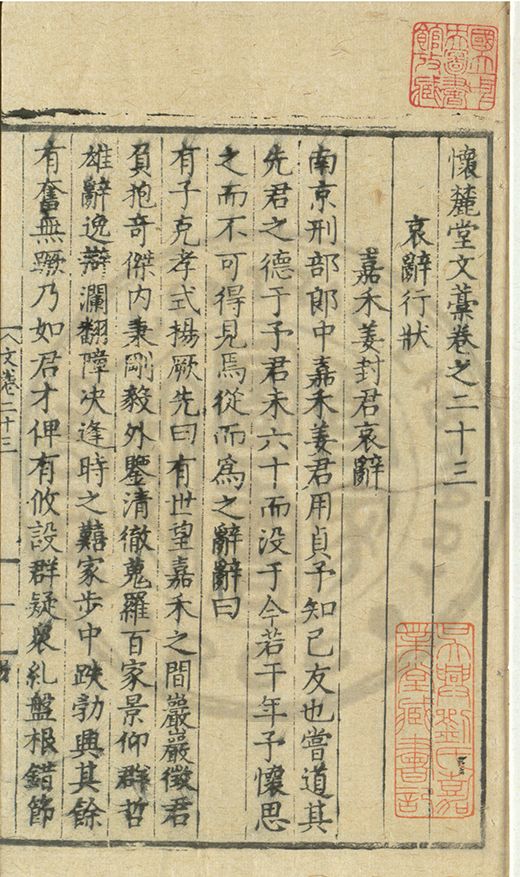 懷麓堂文藁卷之二十三
哀辭行狀
嘉禾姜封君哀辭
南京刑部郎中嘉禾姜君用貞予知已友也嘗道其
先君之德于予君未六十而没于今若干年予懷思
之而不可得見焉從而爲之辭辭曰
有子克孝式揚厥先曰有世望嘉禾之間巖巖徵君
負抱奇傑内秉剛毅外鑒清徹蒐羅百家景仰群哲
雄辭逸辯瀾翻障决逢時之囏家步中跌勃興其餘
有奮無蹶乃如君才俾有攸設群疑衆糺盤根錯節
文卷二十三
吳興劉氏嘉
業堂藏書記